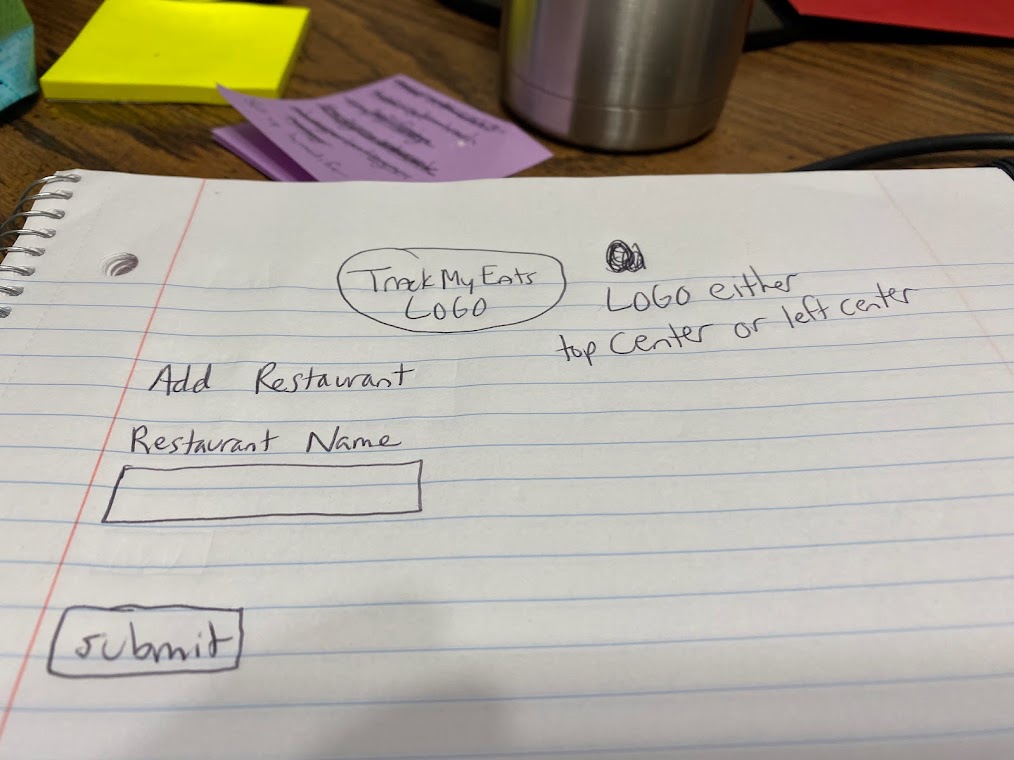 TrackMyEats
LOGO
LOGO either
top center or left center
Add Restaurant
Restaurant Name
submit